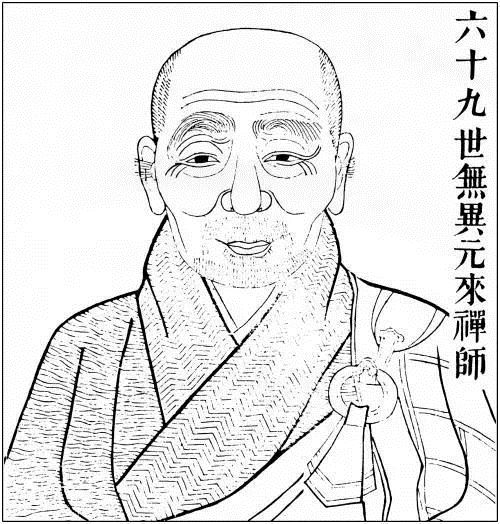 六十九世無異元來禪師